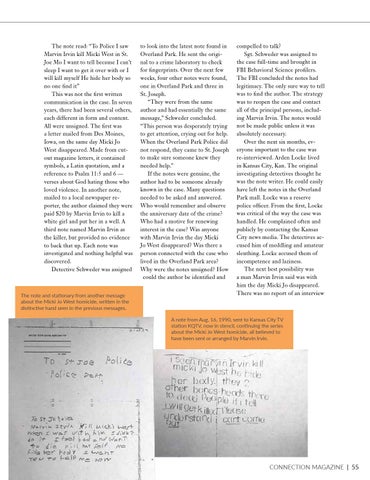 The note read: “To Police I saw
Marvin Irvin kill Micki West in St.
Joe Mo I want to tell because I can’t
sleep I want to get it over with or I
will kill myself He hide her body so
no one find it”
This was not the first written
communication in the case. In seven
years, there had been several others,
each different in form and content.
All were unsigned. The first was
a letter mailed from Des Moines,
Iowa, on the same day Micki Jo
West disappeared. Made from cut-
out magazine letters, it contained
symbols, a Latin quotation, and a
reference to Psalm 11:5 and 6 —
verses about God hating those who
loved violence. In another note,
mailed to a local newspaper re-
porter, the author claimed they were
paid $20 by Marvin Irvin to kill a
white girl and put her in a well. A
third note named Marvin Irvin as
the killer, but provided no evidence
to back that up. Each note was
investigated and nothing helpful was
discovered.
Detective Schweder was assigned
to look into the latest note found in
Overland Park. He sent the origi-
nal to a crime laboratory to check
for fingerprints. Over the next few
weeks, four other notes were found,
one in Overland Park and three in
St. Joseph.
“They were from the same
author and had essentially the same
message,” Schweder concluded.
“This person was desperately trying
to get attention, crying out for help.
When the Overland Park Police did
not respond, they came to St. Joseph
to make sure someone knew they
needed help.”
If the notes were genuine, the
author had to be someone already
known in the case. Many questions
needed to be asked and answered.
Who would remember and observe
the anniversary date of the crime?
Who had a motive for renewing
interest in the case? Was anyone
with Marvin Irvin the day Micki
Jo West disappeared? Was there a
person connected with the case who
lived in the Overland Park area?
Why were the notes unsigned? How
could the author be identified and
compelled to talk?
Sgt. Schweder was assigned to
the case full-time and brought in
FBI Behavioral Science profilers.
The FBI concluded the notes had
legitimacy. The only sure way to tell
was to find the author. The strategy
was to reopen the case and contact
all of the principal persons, includ-
ing Marvin Irvin. The notes would
not be made public unless it was
absolutely necessary.
Over the next six months, ev-
eryone important to the case was
re-interviewed. Arden Locke lived
in Kansas City, Kan. The original
investigating detectives thought he
was the note writer. He could easily
have left the notes in the Overland
Park mall. Locke was a reserve
police officer. From the first, Locke
was critical of the way the case was
handled. He complained often and
publicly by contacting the Kansas
City news media. The detectives ac-
cused him of meddling and amateur
sleuthing. Locke accused them of
incompetence and laziness.
The next best possibility was
a man Marvin Irvin said was with
him the day Micki Jo disappeared.
There was no report of an interview
The note and stationary from another message
about the Micki Jo West homicide, written in the
distinctive hand seen in the previous messages.
A note from Aug. 16, 1990, sent to Kansas City TV
station KQTV, now in stencil, continuing the series
about the Micki Jo West homicide, all believed to
have been sent or arranged by Marvin Irvin.
To St Joe Police
Police Dept
I Seen Marvin Irvin kill
micki jo West he hide
her body they 2
other bones heads there
CONNECTION MAGAZINE | 55